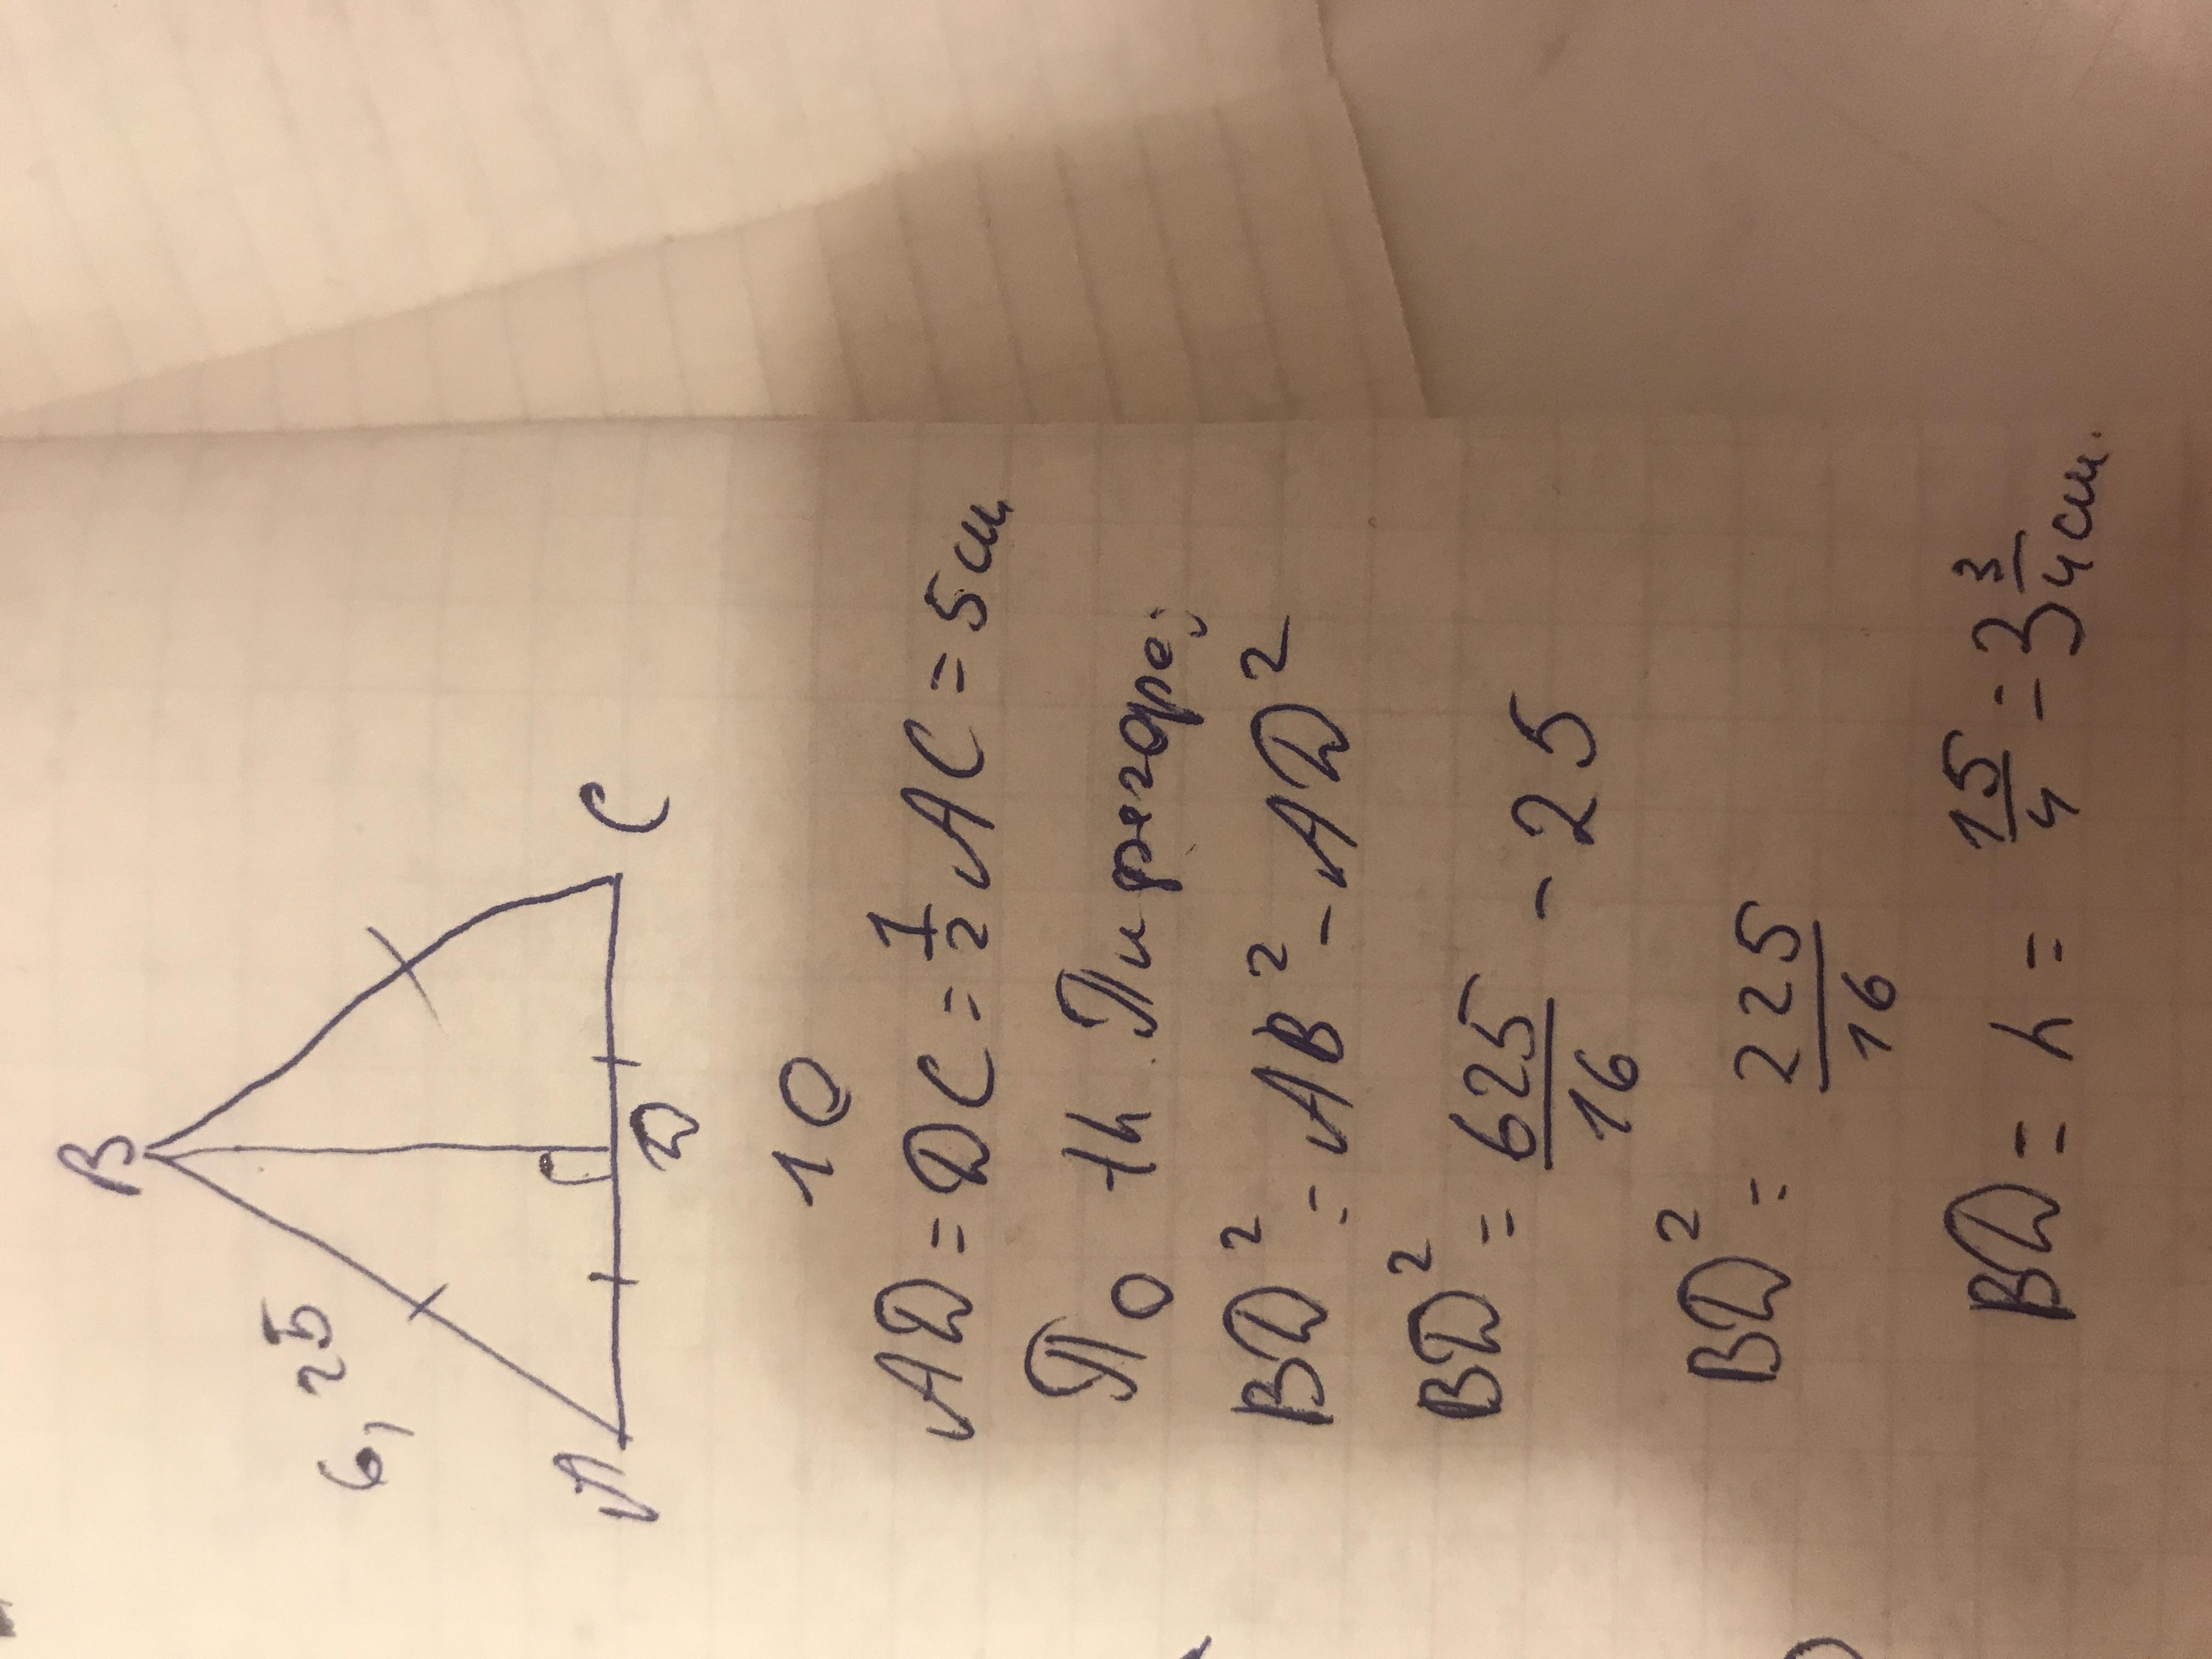 B
6,25
A D C
10
AD = DC = 1/2 AC = 5см
По th. Пифагора:
BD² = AB² - AD²
BD² = 625/16 - 25
BD² = 225/16
BD = h = 15/4 = 3 3/4 см.